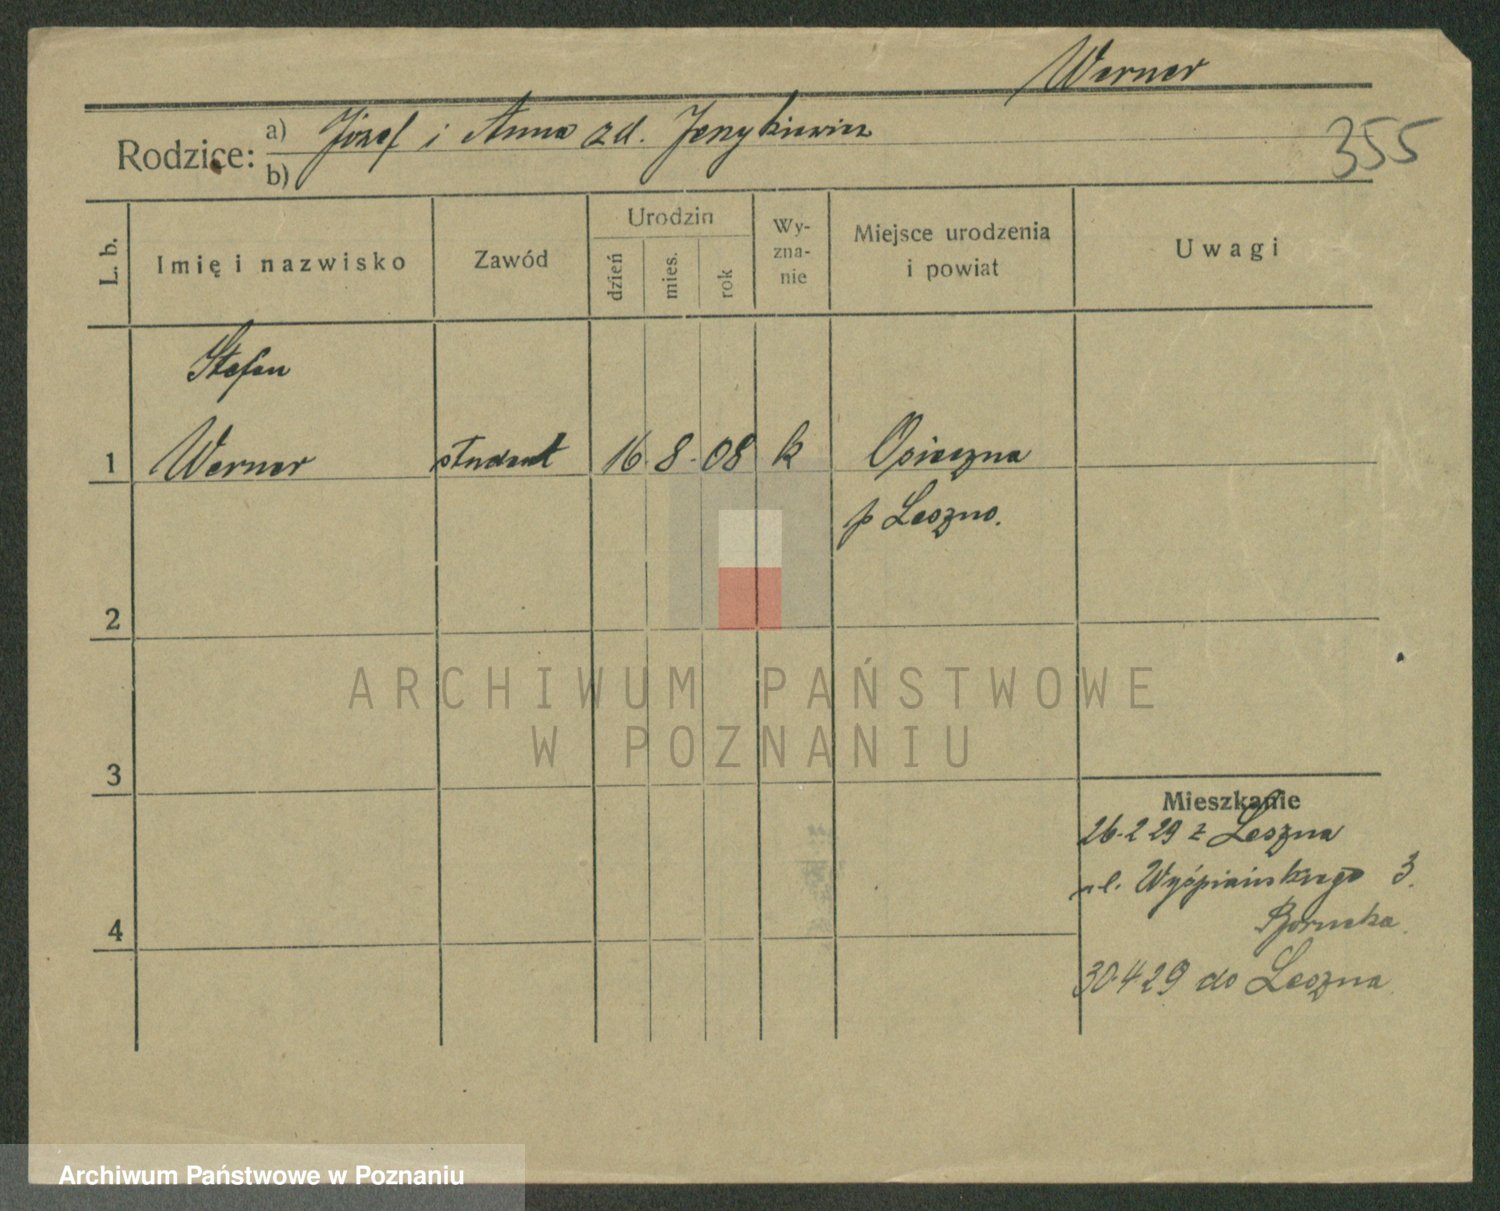 Werner
Rodzice:
a) Józef i Anna zd. Jenykiewicz
b)
355
L. b.
Imię i nazwisko
Zawód
Urodzin
dzień
mies.
rok
Wy-
zna-
nie
Miejsce urodzenia
i powiat
Uwagi
Stefan
1 Werner student 16. 8. 08 k Osieczna
p Leszno.
2
3
4
Mieszkanie
26.2 29 z Leszna
ul. Wyśpiańskiego 3.
30.4 29 do Leszna
ARCHIWUM PAŃSTWOWE
W POZNANIU
Archiwum Państwowe w Poznaniu